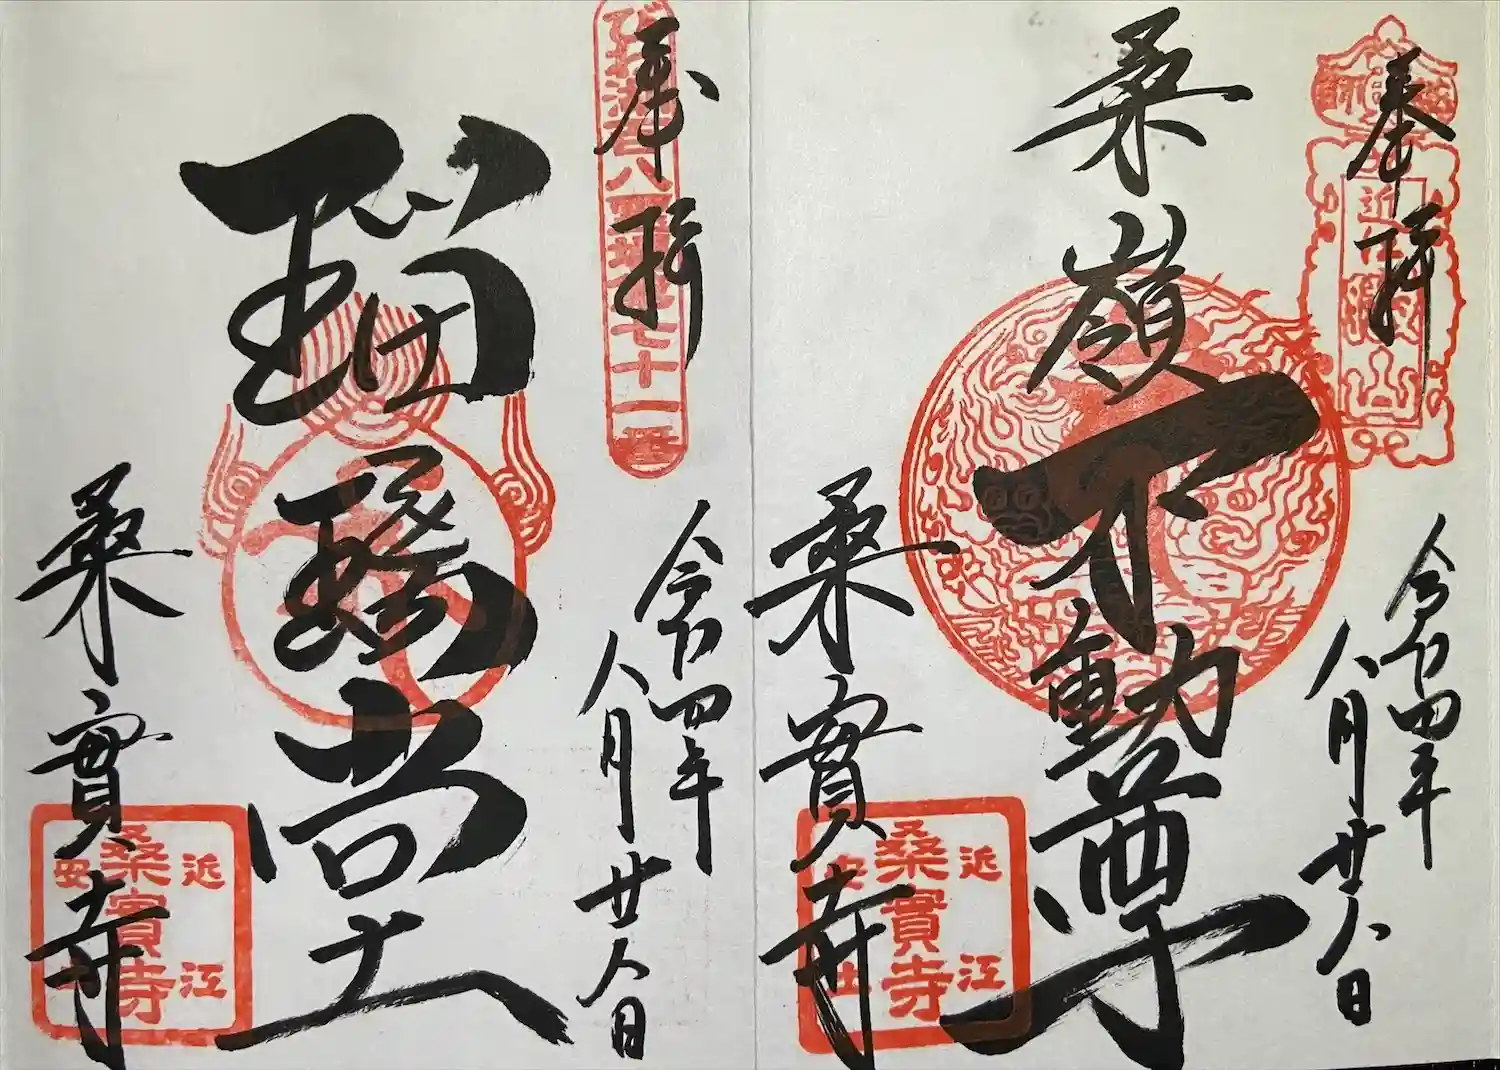 奉拝
桑嶺
不動尊
令和四年
八月廿八日
桑實寺
近江
桑實寺
安土
びわ湖百八霊場第七十一番
奉拝
瑠璃堂
令和四年
八月廿八日
桑實寺
近江
桑實寺
安土